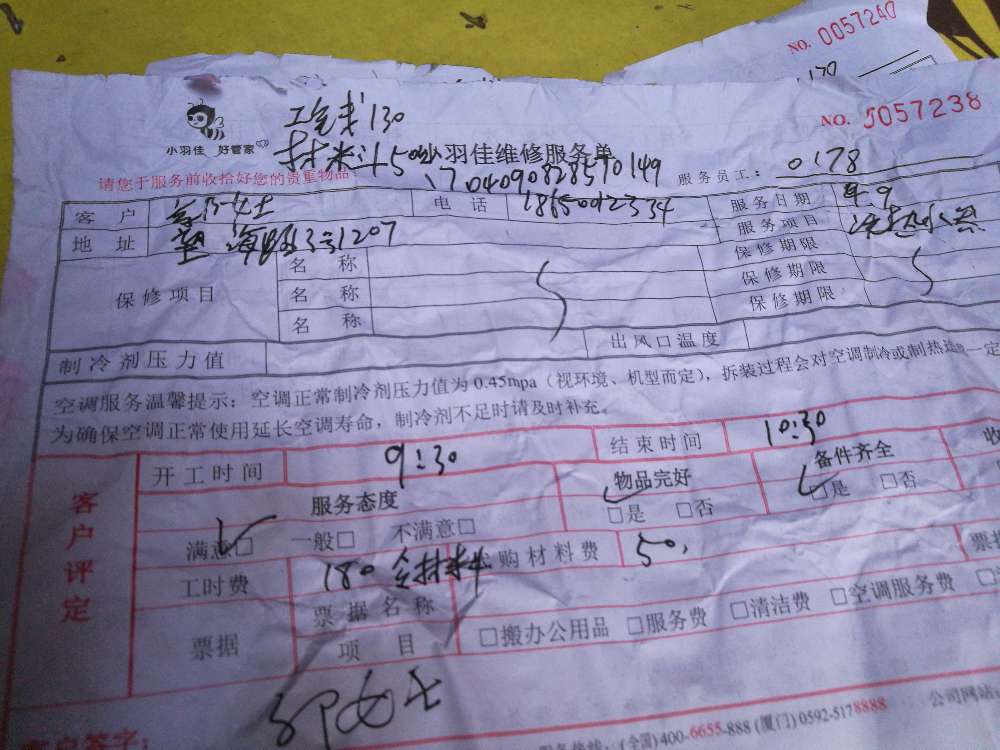 NO. 0057240
NO. 5057238
小羽佳 好管家
工完我130
材米斗50
小羽佳维修服务单
1704090828570149
请您于服务前收拾好您的贵重物品
服务员工: 0178
客户 女士 电话 18650012334 服务日期 4.9
地址 海 3号1207 服务项目
保修项目
名称 保修期限
名称 保修期限
名称 保修期限
制冷剂压力值 出风口温度
空调服务温馨提示: 空调正常制冷剂压力值为0.45mpa(视环境、机型而定), 拆装过程会对空调制冷或制热造 一定
为确保空调正常使用延长空调寿命, 制冷剂不足时请及时补充。
客户评定
开工时间 9:30 结束时间 10:30
服务态度 物品完好 备件齐全 收
满意□ 一般□ 不满意□ □是 □否 □是 □否
工时费 180含材料 购材料费 50,
票据 票据名称 票据
项目 □搬办公用品 □服务费 □清洁费 □空调服务费
客户签字: 邓女士
服务热线: (全国)400-6655-888 (厦门)0592-5178888 公司网站